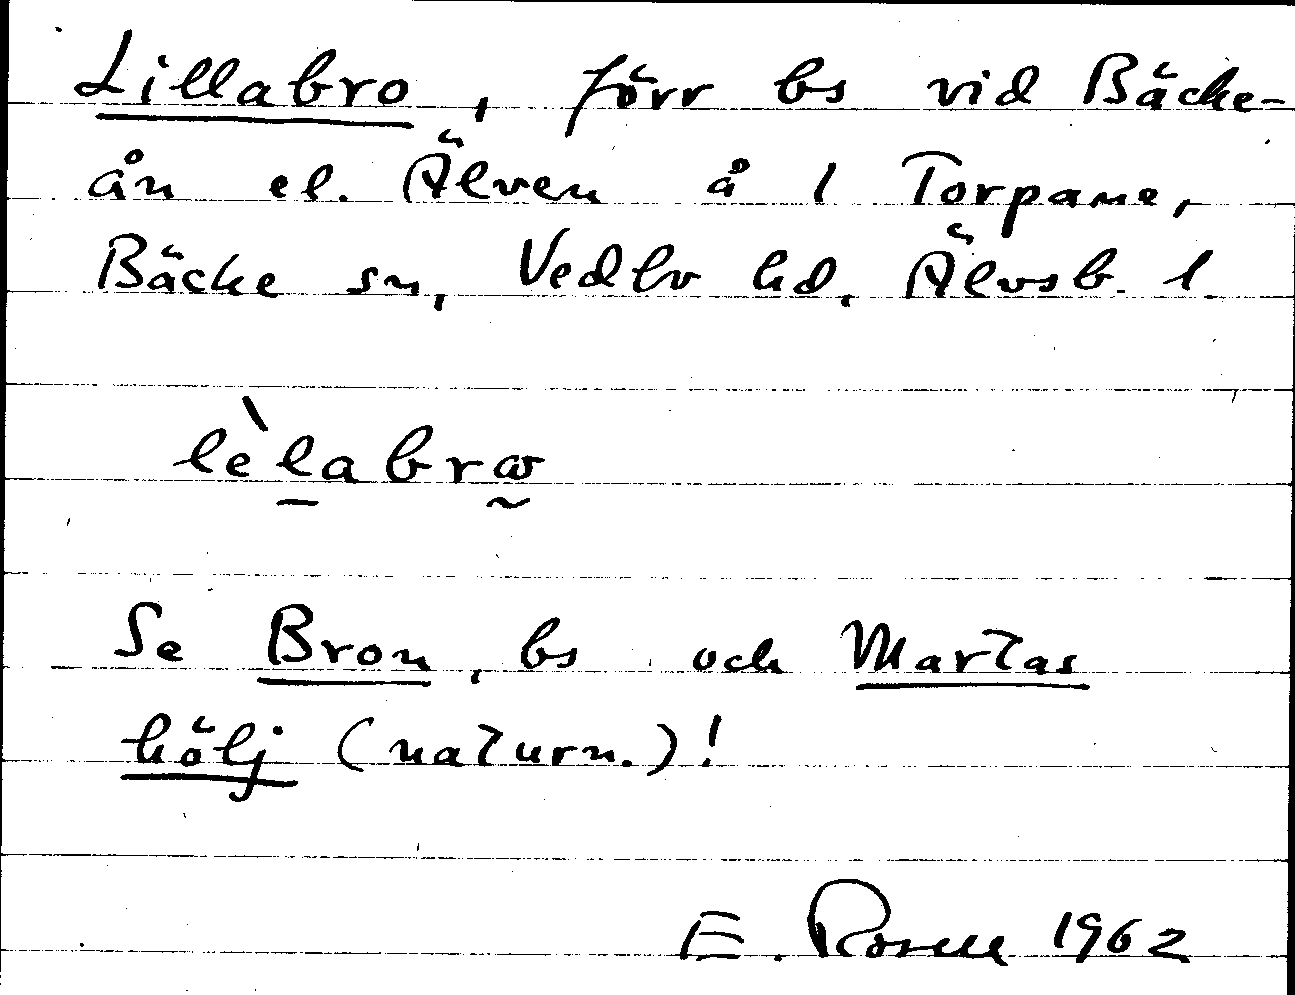 Lillabro, förr bs vid Bäcke-
ån el. Älven å 1 Torpane,
Bäcke sn, Vedbo hd. Älvsb. l.
lèlabrω
Se Bron, bs och Martas
hölj (naturn.)!
E. Rosell 1962